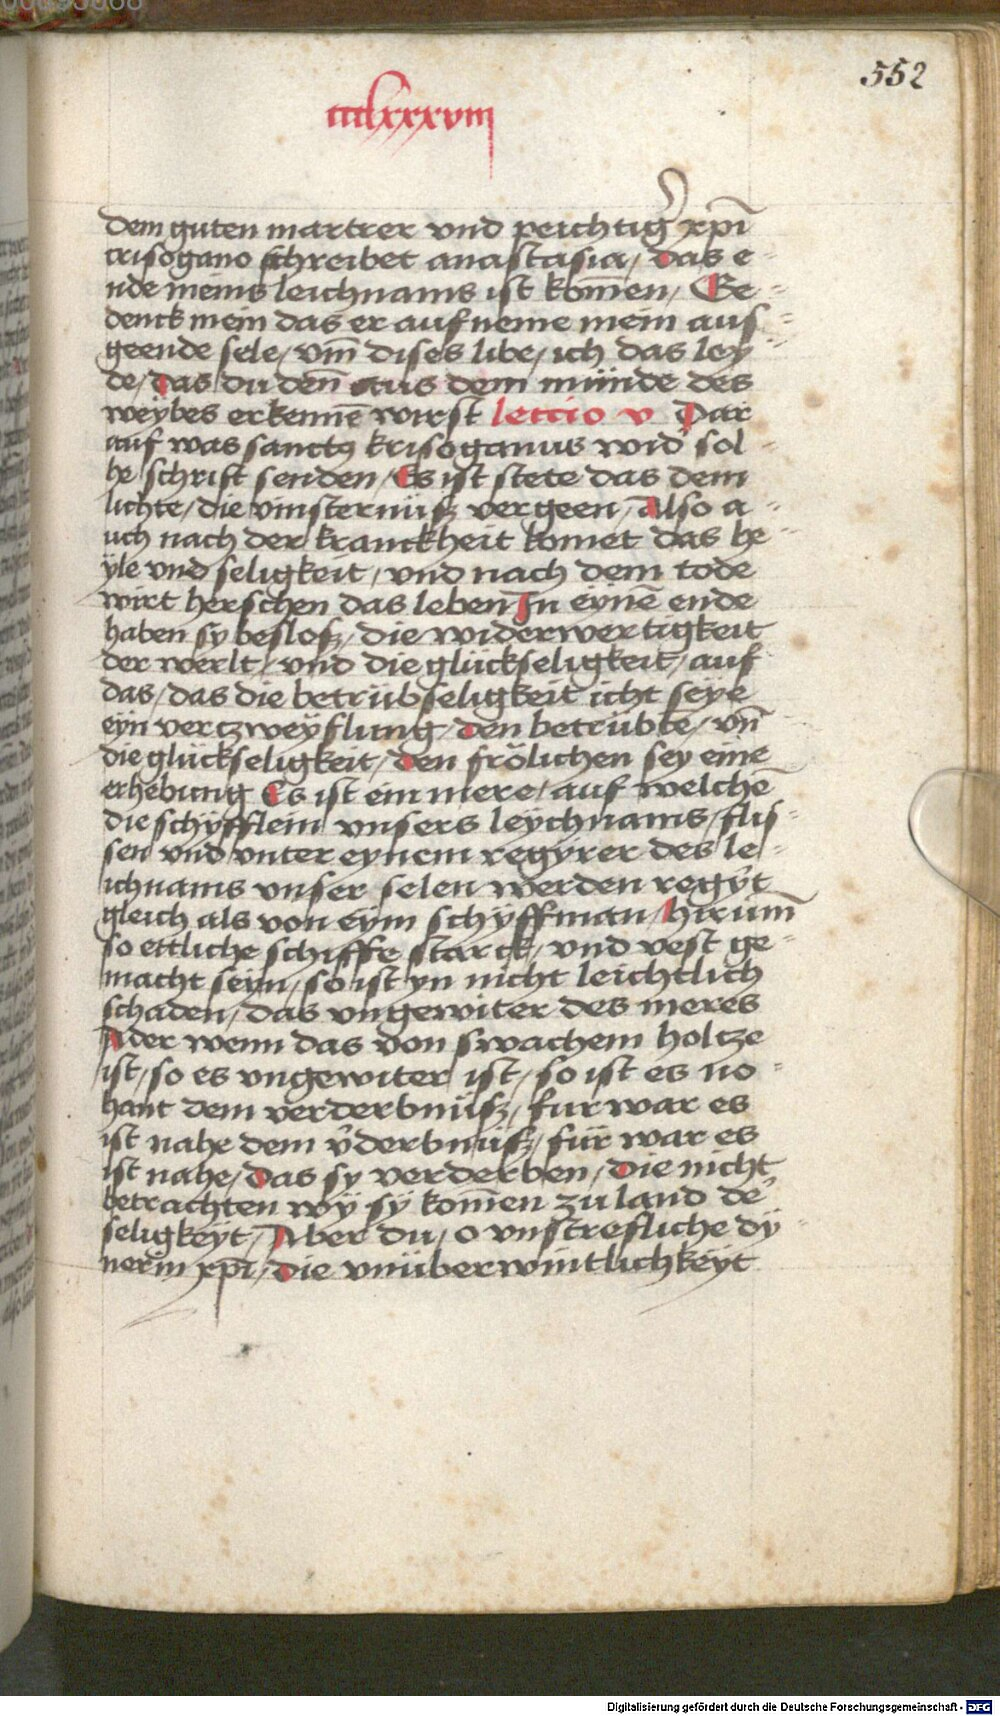 552
cccclxxxviij
dem guten martrer vnd peichtig̾ xp̄i
crisogano schreibet anastasia / das e=
nde meins leichnams ist kom̄en / Ge=
denck mein das er aufneme mein aus=
geende sele / vm̄ dises libe / ich das ley=
de / das du den̄ aus dem münde des
weÿbes erkennē wirst lectio v Dar
auf was sanctꝰ krisoganus wid̾ sol=
he schrift senden / Es ist stete das dem
lichte / die vinsternüß vergeen / Also a=
uch nach der kranckheit komet das he=
ÿle vnd seligkeit / vnd nach dem tode
wirt herschen das leben In eynē ende
haben sy besloß / die widerwertigkeit
der werlt / vnd die glückseligkeit / auf
das / das die betrübseligkeit icht seÿe
eÿn verczweÿflung / den betrübte / vn̄
die glückseligkeit / den frölichen sey eine
erhebung Es ist ein mere / auf welchē
die schÿfflein vnsers leychnams / flis=
sen vnd vnter eynem regÿrer des le=
ichnams vnser selen werden regÿt
gleich als von eÿm schÿffman / hirüm̄
so ettliche schiffe starck / vnd vest ge=
macht seÿn / so ist yn nicht leichtlich
schaden / das vngewiter des meres
Ader wenn das von swachem holtze
ist / so es vngewiter ist / so ist es no=
hant dem verderbnüß / fur war es
ist nahe dem v̾derbnüß / für war es
ist nahe / das sy verderben / die nicht
betrachten wÿ sÿ kom̄en zu land de̾
seligkeÿt / Aber du / o vnstrefliche dÿ=
nerin xp̄i / die vnüberwintlichkeÿt
Digitalisierung gefördert durch die Deutsche Forschungsgemeinschaft - DFG